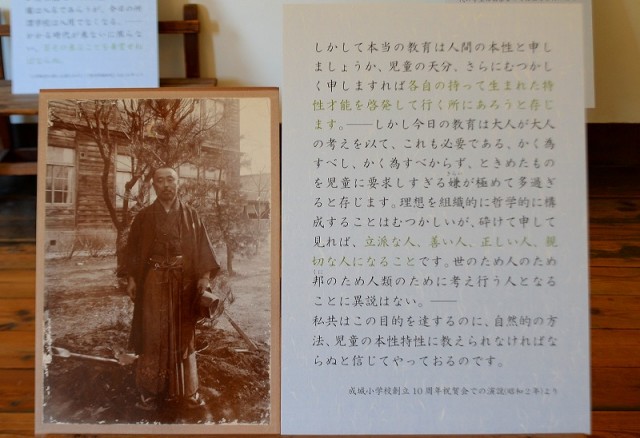 しかして本当の教育は人間の本性と申し
ましょうか、児童の天分、さらにむつかし
く申しますれば各自の持って生まれた特
性才能を啓発して行く所にあろうと存じ
ます。――しかし今日の教育は大人が大人
の考えを以て、これも必要である、かく為
すべし、かく為すべからず、ときめたもの
を児童に要求しすぎる嫌が極めて多過ぎ
ると存じます。理想を組織的に哲学的に構
成することはむつかしいが、砕けて申して
見れば、立派な人、善い人、正しい人、親
切な人になることです。世のため人のため
邦のため人類のために考え行う人となる
ことに異説はない。――
私共はこの目的を達するのに、自然的の方
法、児童の本性特性に教えられなければな
らぬと信じてやっておるのです。
成城小学校創立10周年祝賀会での演説(昭和2年)より